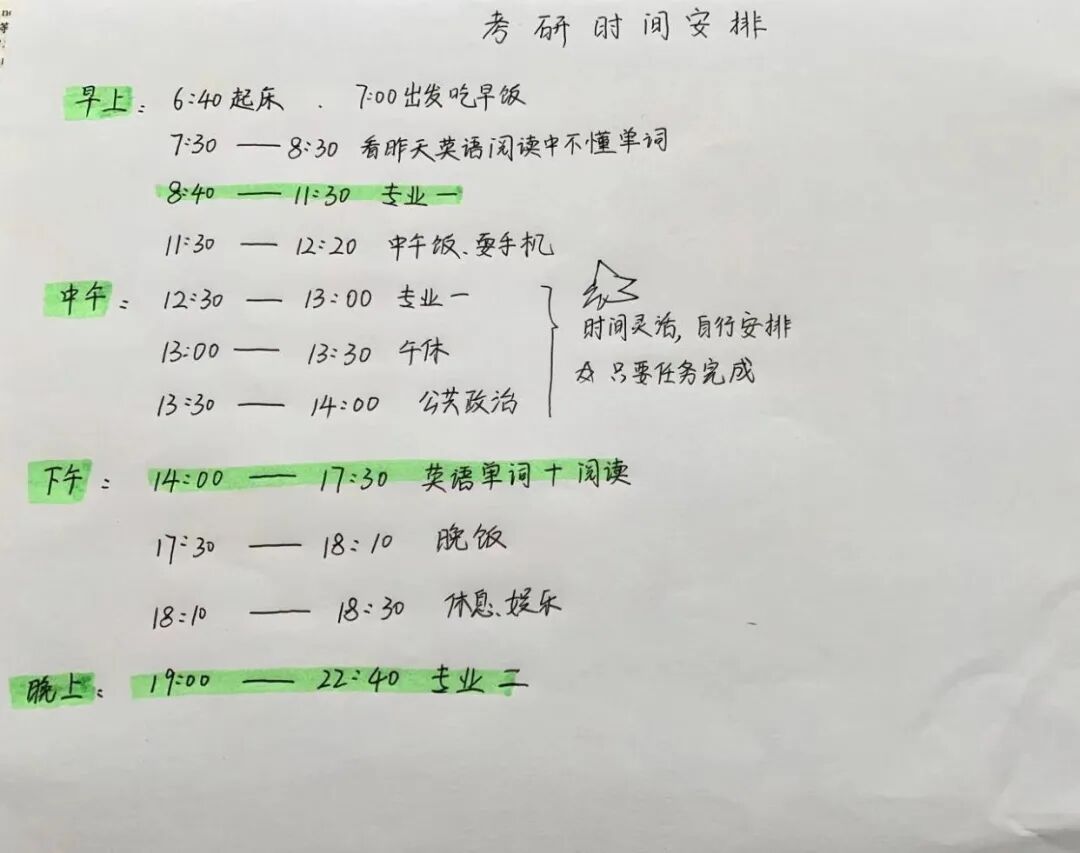 考研时间安排
早上: 6:40起床. 7:00出发吃早饭
7:30 — 8:30 看昨天英语阅读中不懂单词
8:40 — 11:30 专业一
11:30 — 12:20 中午饭、耍手机
中午: 12:30 — 13:00 专业一
13:00 — 13:30 午休
13:30 — 14:00 公共政治
时间灵活,自行安排
☆ 只要任务完成
下午: 14:00 — 17:30 英语单词+阅读
17:30 — 18:10 晚饭
18:10 — 18:30 休息、娱乐
晚上: 19:00 — 22:40 专业二